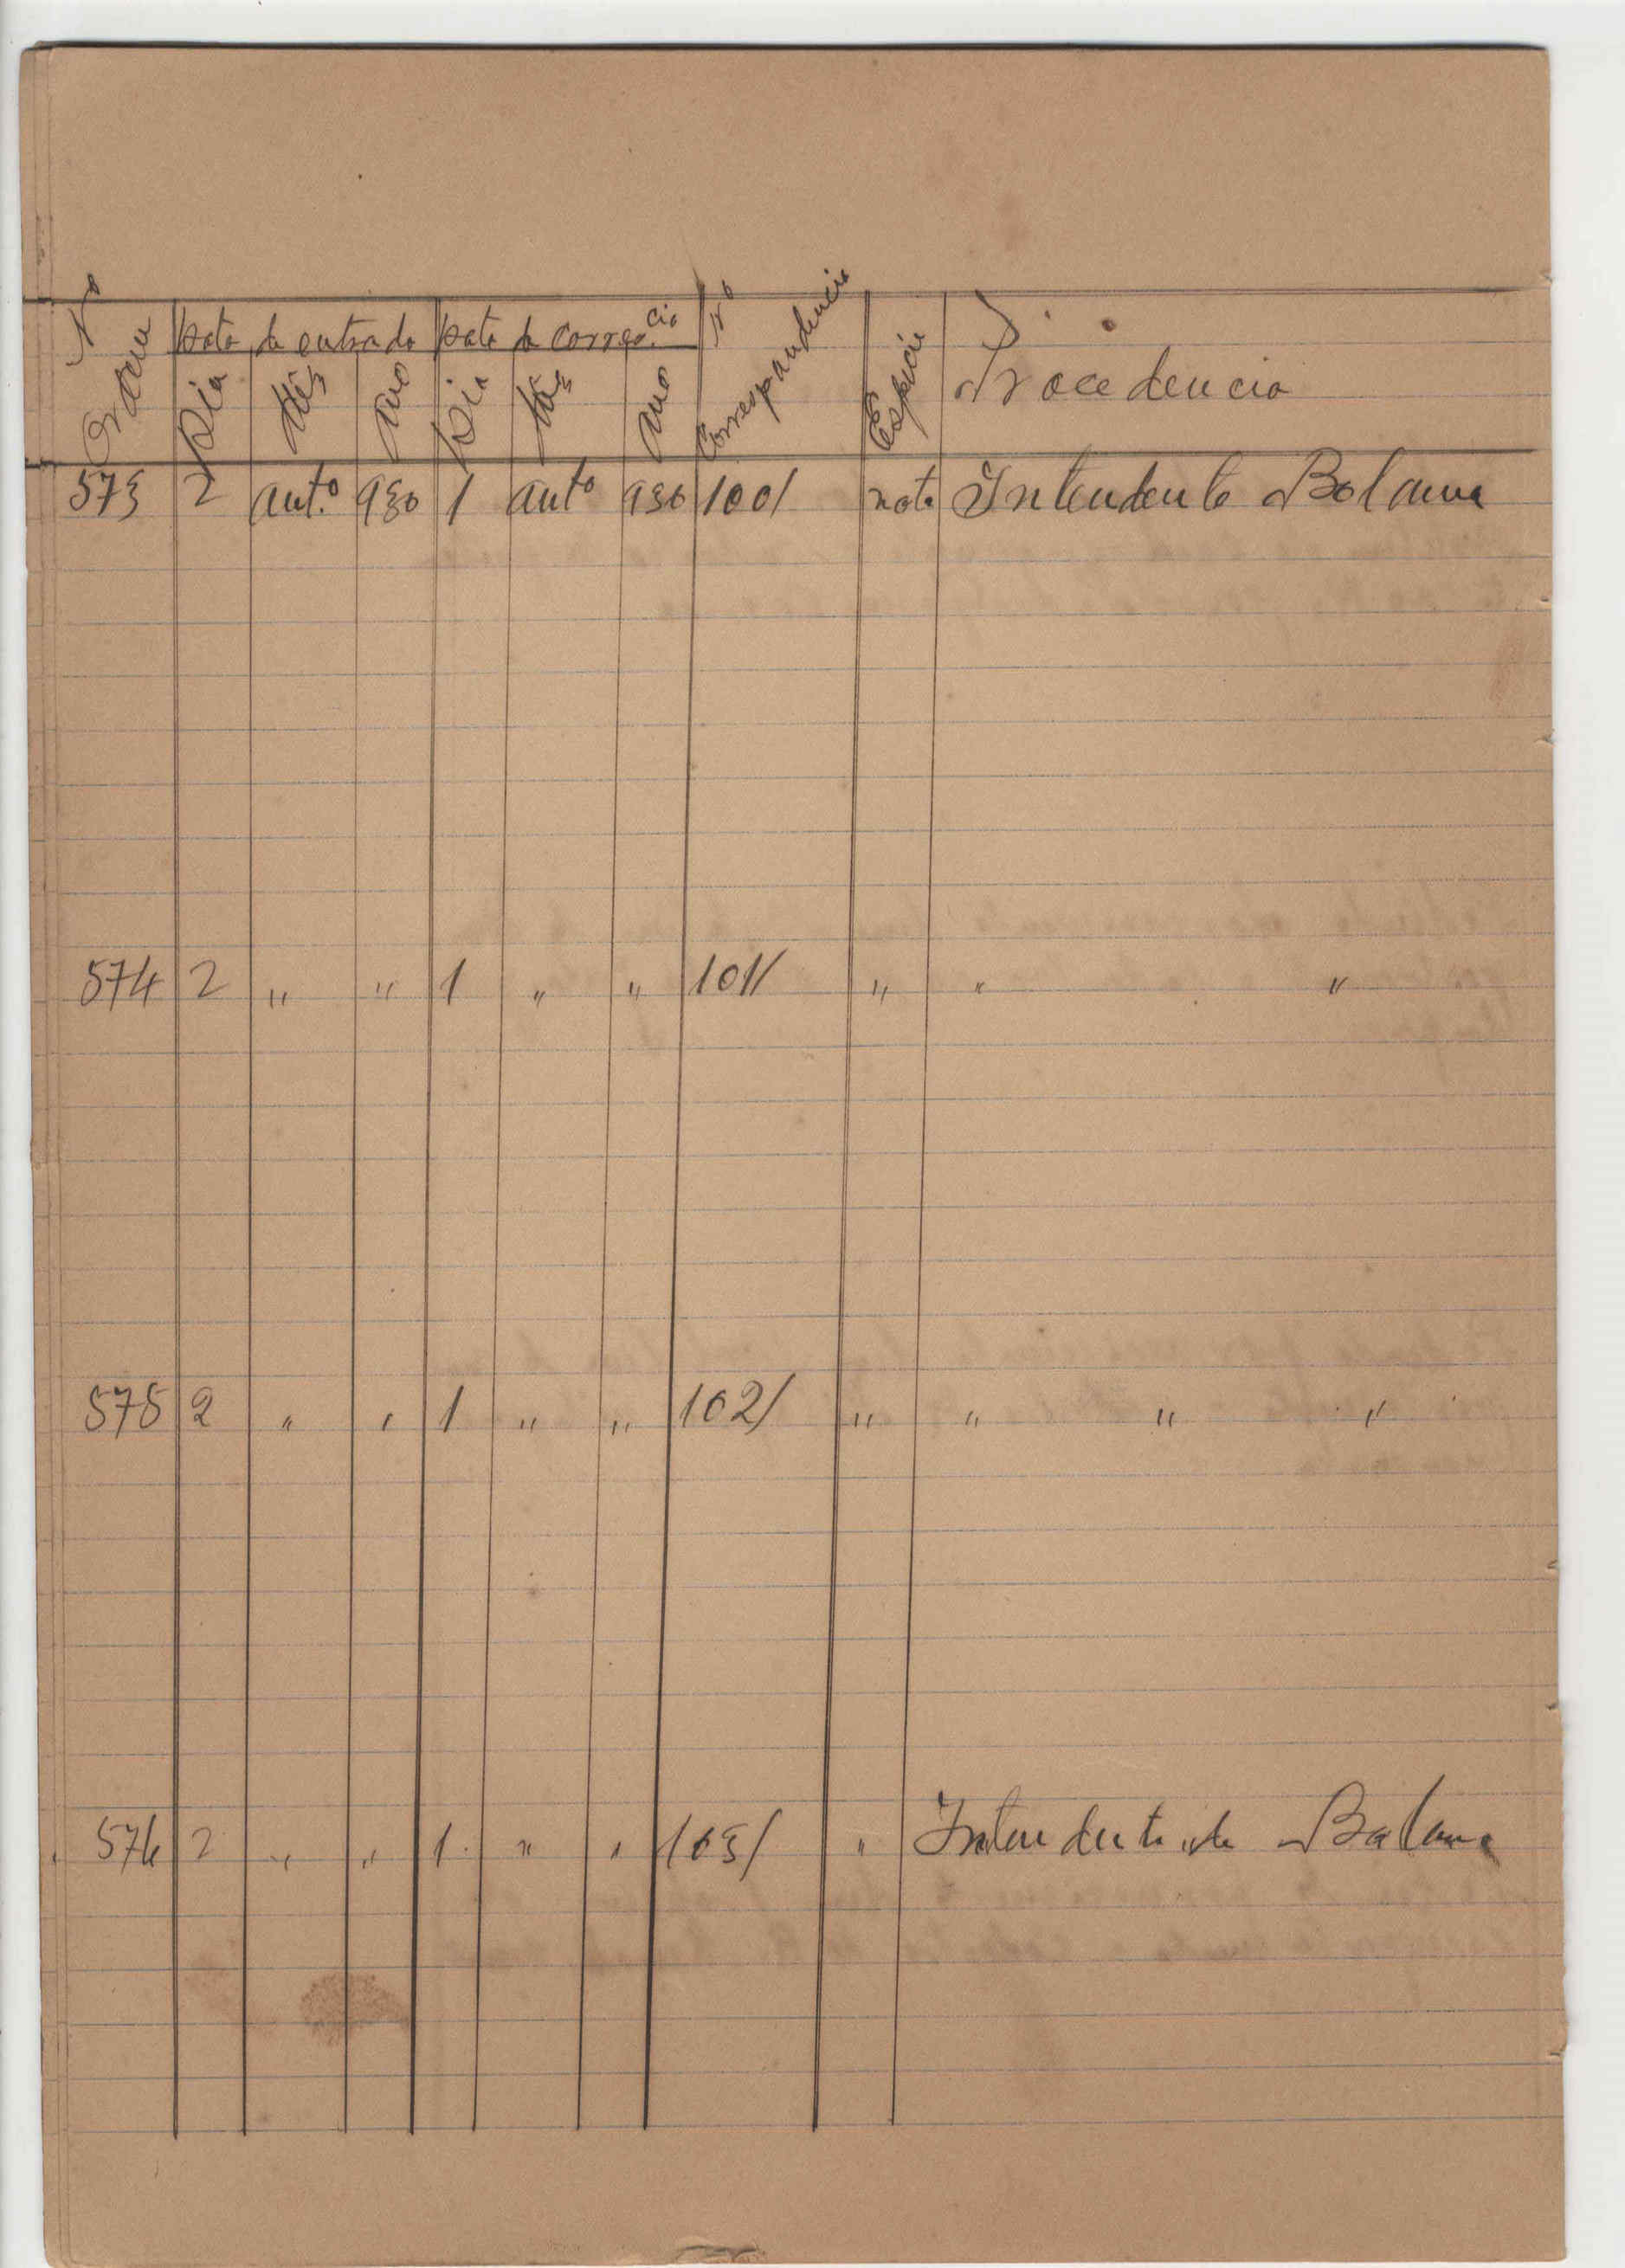 Nº Ordem | Data da entrada | Data da corresp.cia | Nº Correspondencia | Especie | Procedencia
Dia | Mês | Ano | Dia | Mês | Ano
573 | 2 | aut.º | 930 | 1 | autº | 930 | 100/ | nota | Intendente Bolama
574 | 2 | " | " | 1 | " | " | 101/ | " | " "
575 | 2 | " | " | 1 | " | " | 102/ | " | " " "
576 | 2 | " | " | 1 | " | " | 103/ | " | Intendente de Bolama